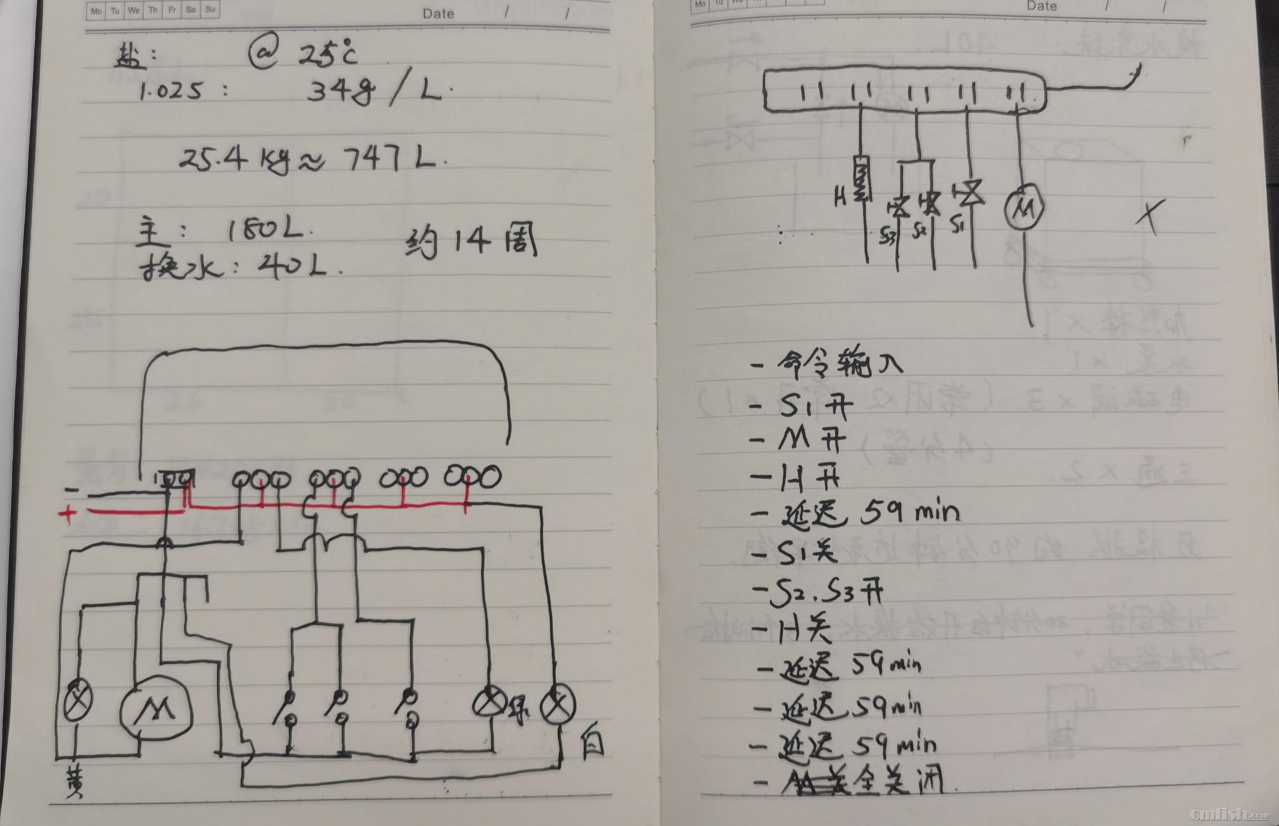 Mo Tu We Th Fr Sa Su
Date / /
盐: @ 25℃
1.025: 34g/L.
25.4 kg≈747L.
主: 180L.
换水: 40L.
约14周
- +
M
绿
白
黄
Mo Tu We
Date / /
H S3 S2 S1 M
X
- 命令输入
- S1开
- M开
- H开
- 延迟 59 min
- S1关
- S2.S3开
- H关
- 延迟 59 min
- 延迟 59 min
- 延迟 59 min
- 全关闭.